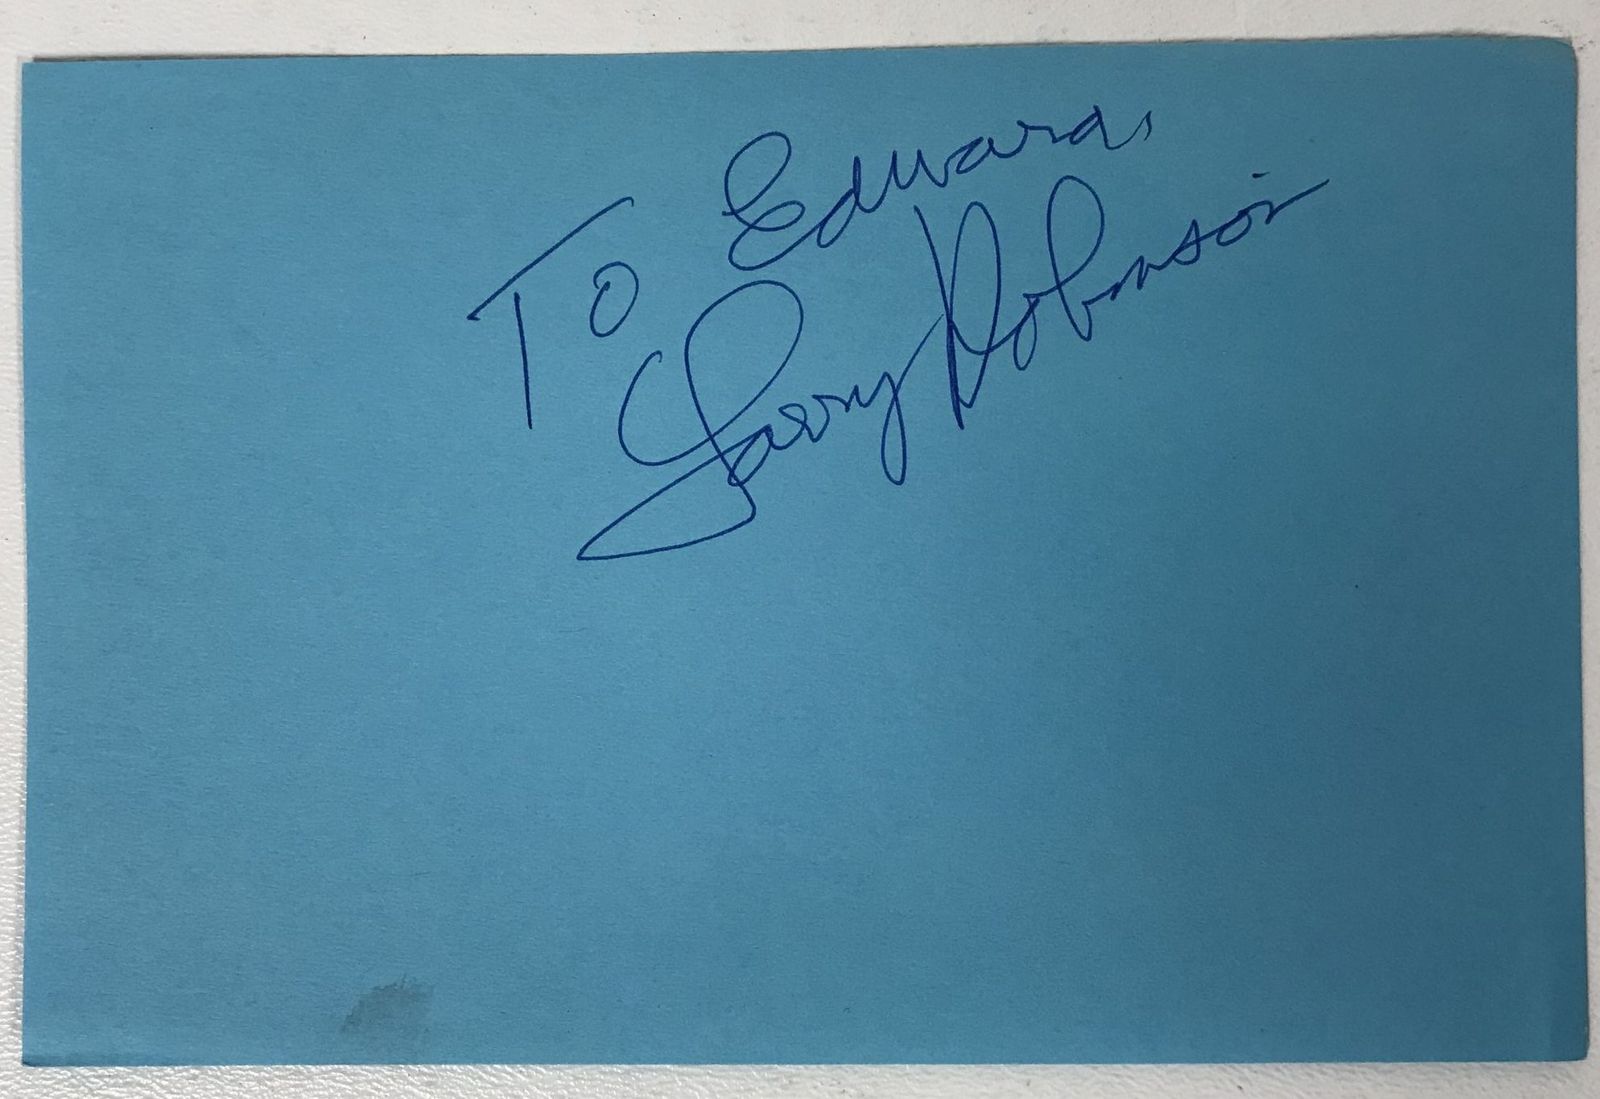 To Edward,
Larry Robinson